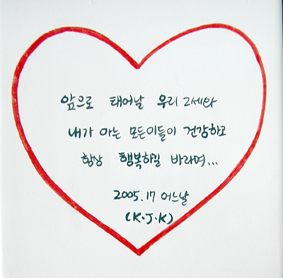 앞으로 태어날 우리 2세와
내가 아는 모든이들이 건강하고
항상 행복하길 바라며...
2005.17 어느날
(K·J·K)